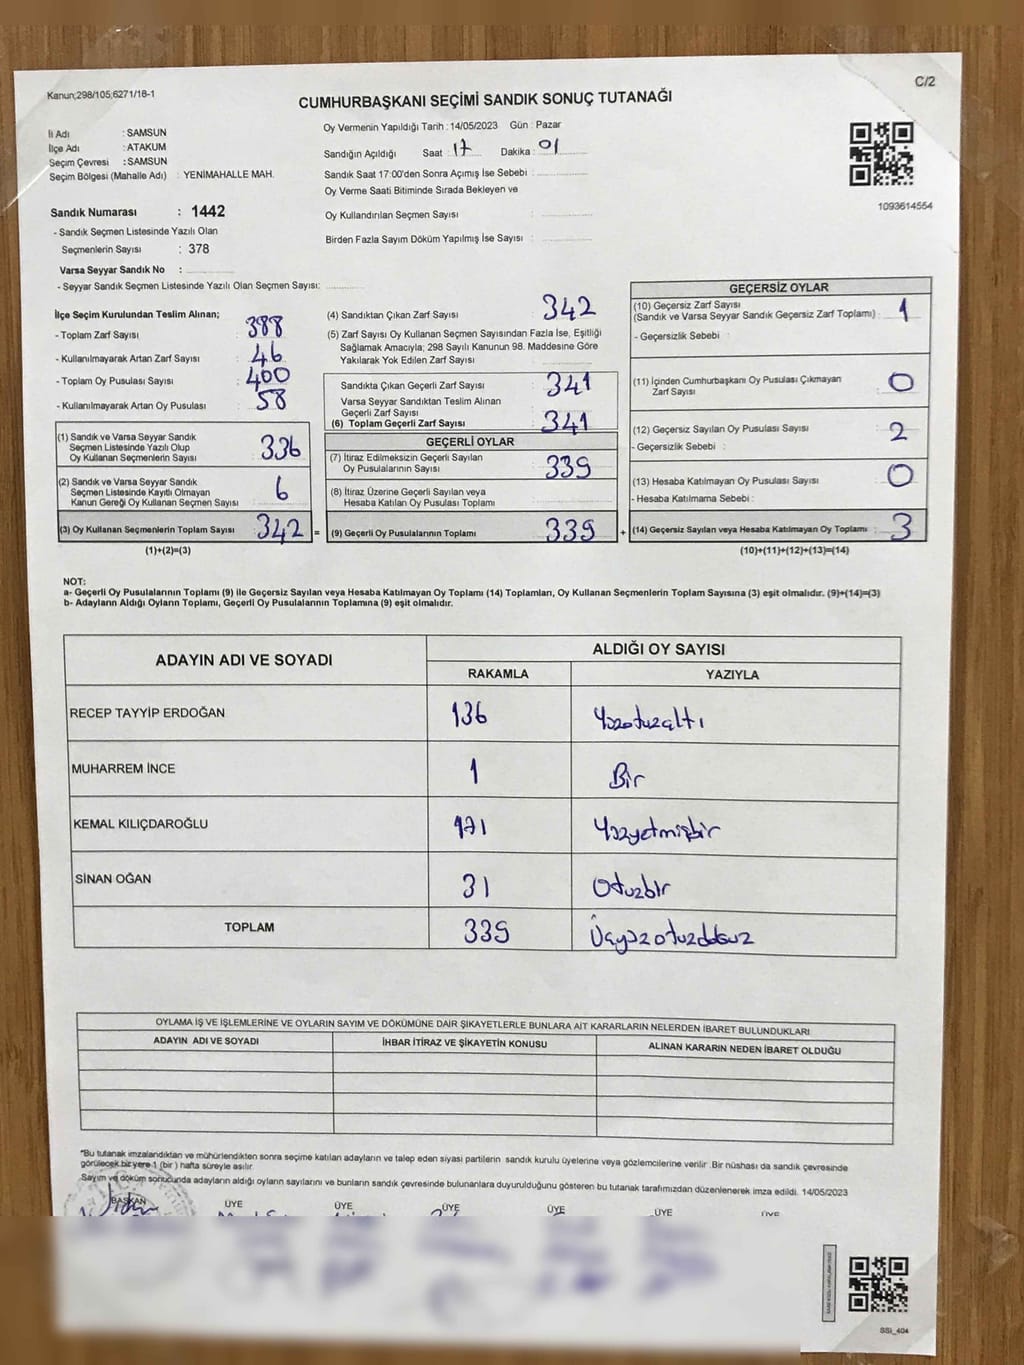 Kanun;298/105;6271/18-1
C/2
CUMHURBAŞKANI SEÇİMİ SANDIK SONUÇ TUTANAĞI
İli Adı : SAMSUN
İlçe Adı : ATAKUM
Seçim Çevresi : SAMSUN
Seçim Bölgesi (Mahalle Adı) : YENİMAHALLE MAH.
Sandık Numarası : 1442
- Sandık Seçmen Listesinde Yazılı Olan
Seçmenlerin Sayısı : 378
Varsa Seyyar Sandık No :
- Seyyar Sandık Seçmen Listesinde Yazılı Olan Seçmen Sayısı:
Oy Vermenin Yapıldığı Tarih : 14/05/2023 Gün : Pazar
Sandığın Açıldığı Saat : 17 Dakika : 01
Sandık Saat 17:00'den Sonra Açımış İse Sebebi :
Oy Verme Saati Bitiminde Sırada Bekleyen ve
Oy Kullandırılan Seçmen Sayısı :
Birden Fazla Sayım Döküm Yapılmış İse Sayısı :
1093614554
İlçe Seçim Kurulundan Teslim Alınan;
- Toplam Zarf Sayısı : 388
- Kullanılmayarak Artan Zarf Sayısı : 46
- Toplam Oy Pusulası Sayısı : 400
- Kullanılmayarak Artan Oy Pusulası : 58
(1) Sandık ve Varsa Seyyar Sandık
Seçmen Listesinde Yazılı Olup
Oy Kullanan Seçmenlerin Sayısı 336
(2) Sandık ve Varsa Seyyar Sandık
Seçmen Listesinde Kayıtlı Olmayan
Kanun Gereği Oy Kullanan Seçmen Sayısı 6
(3) Oy Kullanan Seçmenlerin Toplam Sayısı 342 =
(1)+(2)=(3)
(4) Sandıktan Çıkan Zarf Sayısı : 342
(5) Zarf Sayısı Oy Kullanan Seçmen Sayısından Fazla İse, Eşitliği
Sağlamak Amacıyla; 298 Sayılı Kanunun 98. Maddesine Göre
Yakılarak Yok Edilen Zarf Sayısı :
Sandıkta Çıkan Geçerli Zarf Sayısı : 341
Varsa Seyyar Sandıktan Teslim Alınan
Geçerli Zarf Sayısı :
(6) Toplam Geçerli Zarf Sayısı : 341
GEÇERLİ OYLAR
(7) İtiraz Edilmeksizin Geçerli Sayılan
Oy Pusulalarının Sayısı : 339
(8) İtiraz Üzerine Geçerli Sayılan veya
Hesaba Katılan Oy Pusulası Toplamı :
(9) Geçerli Oy Pusulalarının Toplamı : 339 +
GEÇERSİZ OYLAR
(10) Geçersiz Zarf Sayısı
(Sandık ve Varsa Seyyar Sandık Geçersiz Zarf Toplamı) : 1
- Geçersizlik Sebebi :
(11) İçinden Cumhurbaşkanı Oy Pusulası Çıkmayan
Zarf Sayısı : 0
(12) Geçersiz Sayılan Oy Pusulası Sayısı : 2
- Geçersizlik Sebebi :
(13) Hesaba Katılmayan Oy Pusulası Sayısı : 0
- Hesaba Katılmama Sebebi :
(14) Geçersiz Sayılan veya Hesaba Katılmayan Oy Toplamı : 3
(10)+(11)+(12)+(13)=(14)
NOT:
a- Geçerli Oy Pusulalarının Toplamı (9) ile Geçersiz Sayılan veya Hesaba Katılmayan Oy Toplamı (14) Toplamları, Oy Kullanan Seçmenlerin Toplam Sayısına (3) eşit olmalıdır. (9)+(14)=(3)
b- Adayların Aldığı Oyların Toplamı, Geçerli Oy Pusulalarının Toplamına (9) eşit olmalıdır.
ADAYIN ADI VE SOYADI
ALDIĞI OY SAYISI
RAKAMLA YAZIYLA
RECEP TAYYİP ERDOĞAN 136 Yüzotuzaltı
MUHARREM İNCE 1 Bir
KEMAL KILIÇDAROĞLU 171 Yüzyetmişbir
SİNAN OĞAN 31 Otuzbir
TOPLAM 339 Üçyüzotuzdokuz
OYLAMA İŞ VE İŞLEMLERİNE VE OYLARIN SAYIM VE DÖKÜMÜNE DAİR ŞİKAYETLERLE BUNLARA AİT KARARLARIN NELERDEN İBARET BULUNDUKLARI
ADAYIN ADI VE SOYADI İHBAR İTİRAZ VE ŞİKAYETİN KONUSU ALINAN KARARIN NEDEN İBARET OLDUĞU
"Bu tutanak imzalandıktan ve mühürlendikten sonra seçime katılan adayların ve talep eden siyasi partilerin sandık kurulu üyelerine veya gözlemcilerine verilir .Bir nüshası da sandık çevresinde
görülecek bir yere 1 (bir ) hafta süreyle asılır.
Sayım ve döküm sonucunda adayların aldığı oyların sayılarını ve bunların sandık çevresinde bulunanlara duyurulduğunu gösteren bu tutanak tarafımızdan düzenlenerek imza edildi. 14/05/2023
BAŞKAN ÜYE ÜYE ÜYE ÜYE ÜYE ÜYE
SSİ_404